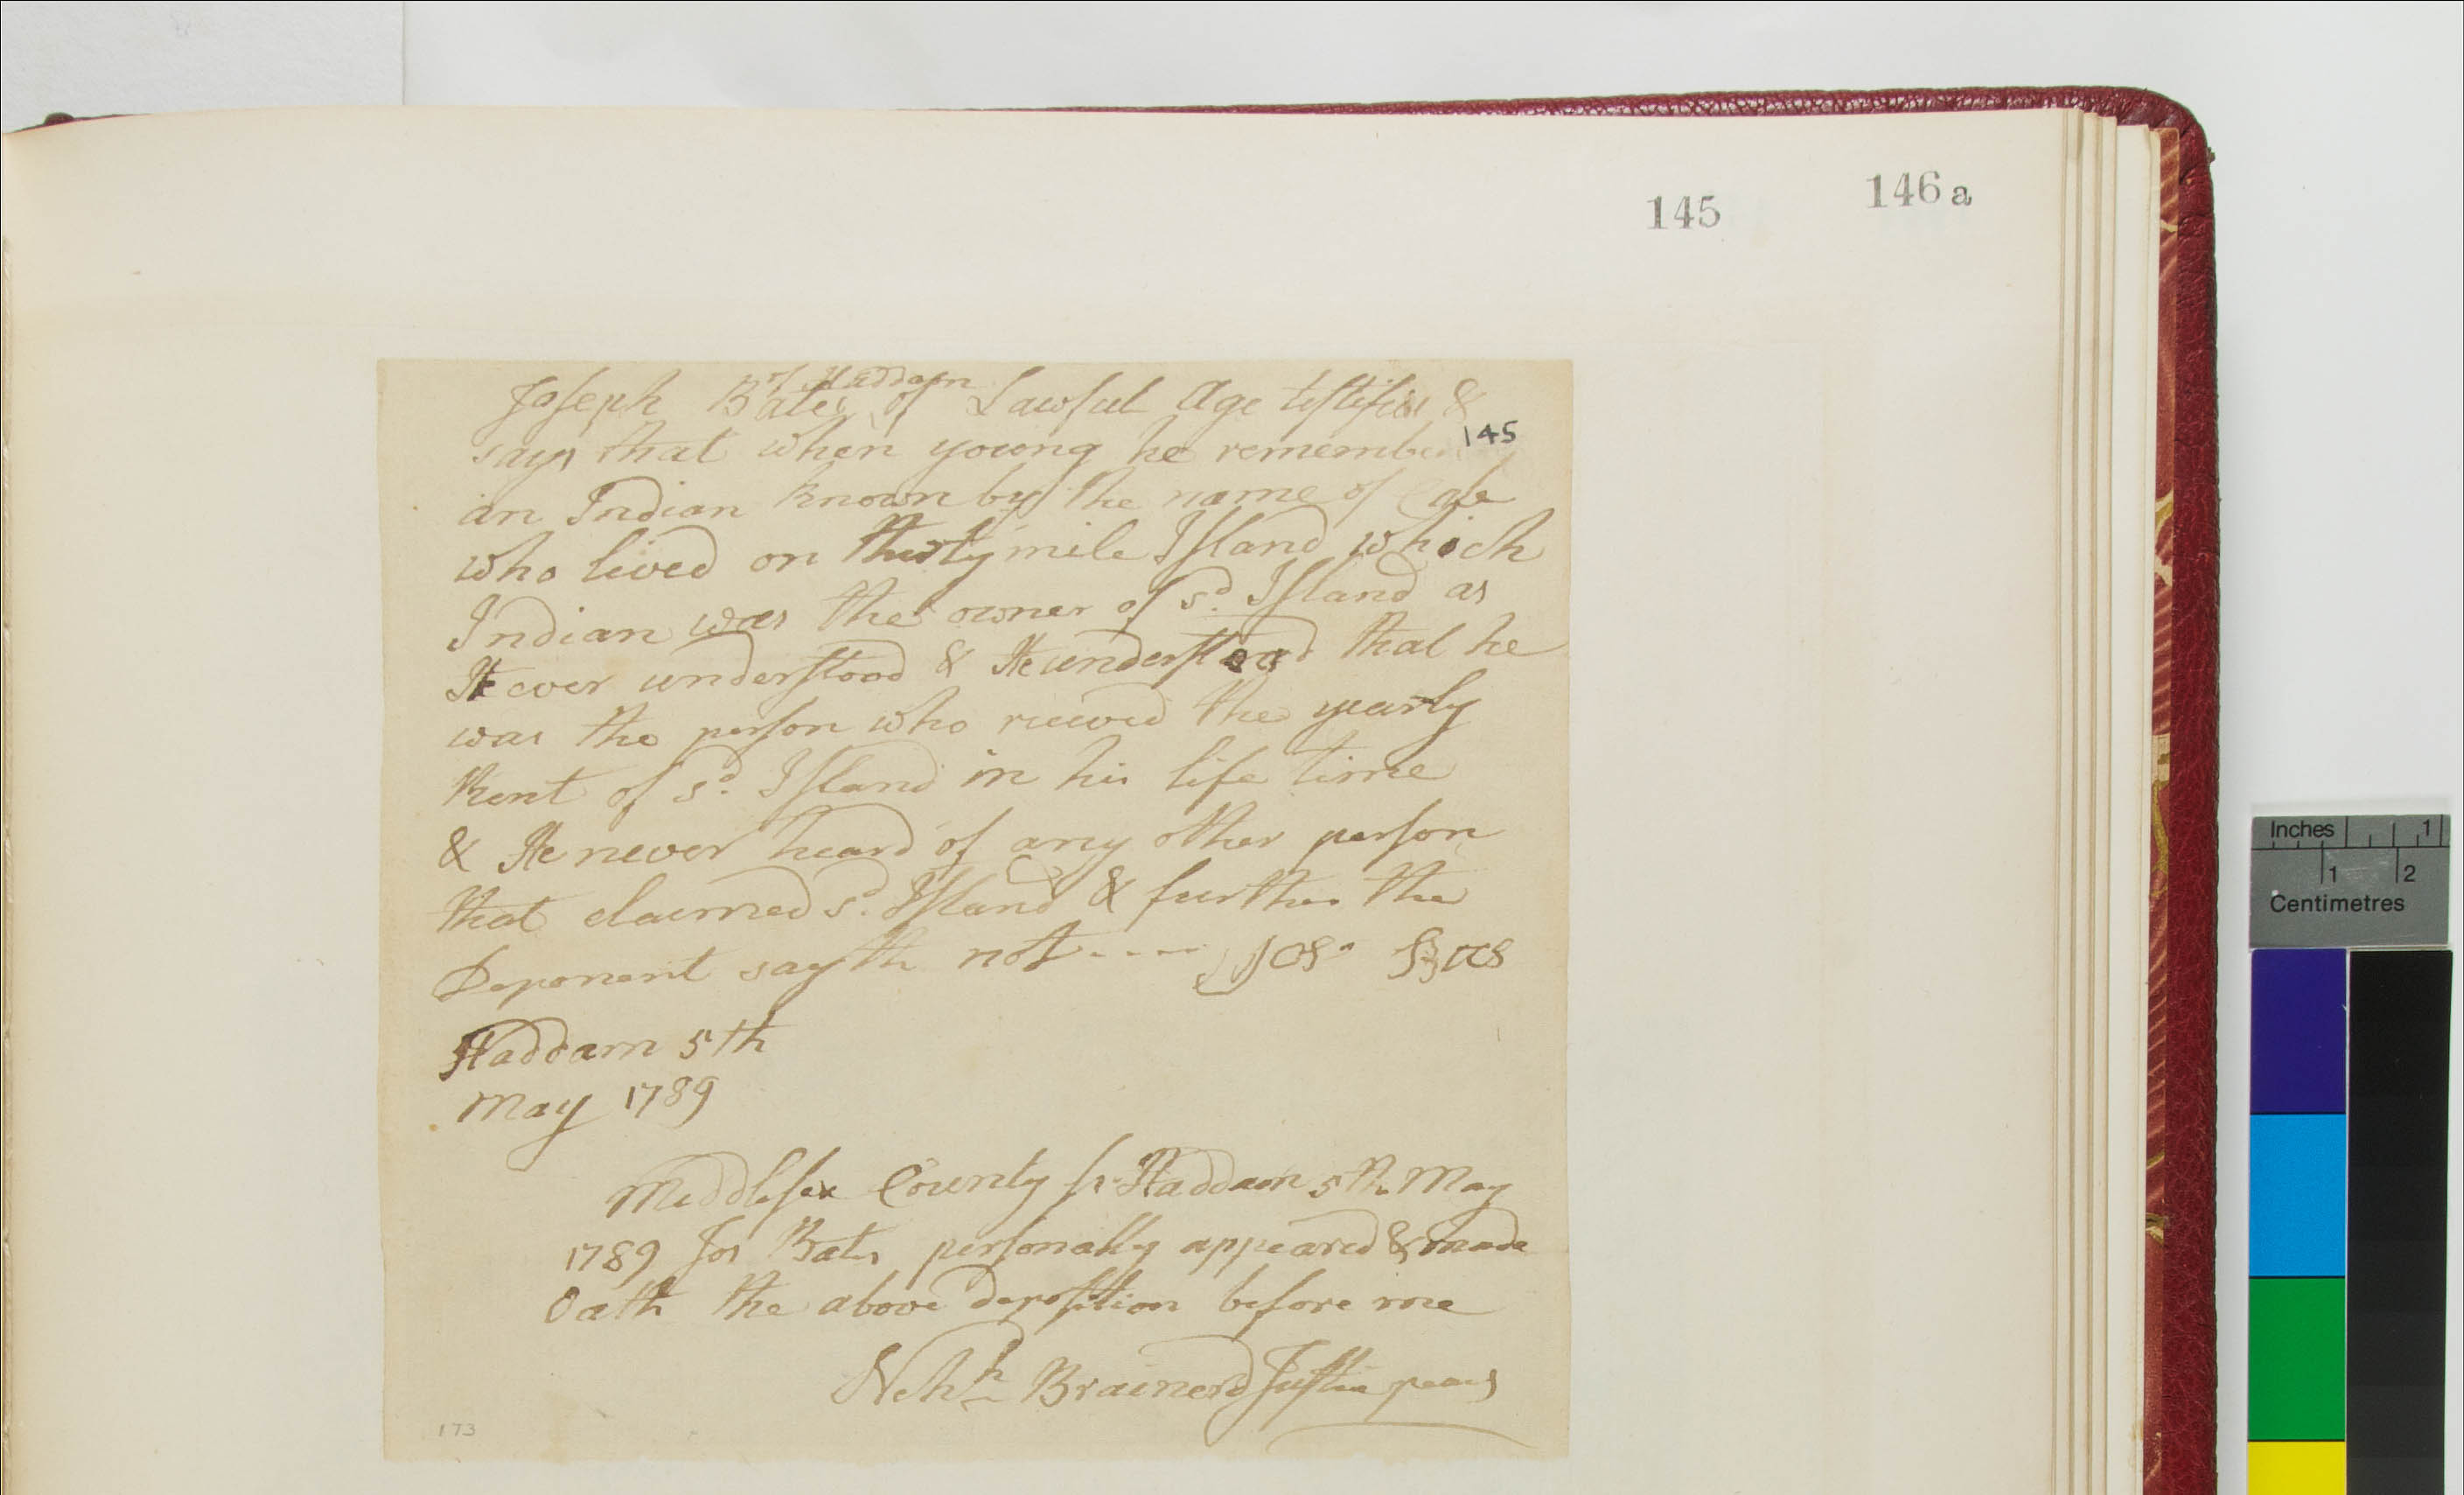 145
146 a
of Haddam
Joseph Bates of Lawful Age testifies &
145
says that when young he remember
an Indian known by the name of
who lived on thirty mile Island which
Indian was the owner of sd. Island as
He ever understood & He understood that he
was the person who recived the yearly
Rent of sd. Island in his life time
& He never heard of any other person
that claimed sd. Island & further the
Deponent sayth not ---- Jos.
Haddam 5th
May 1789
Middlesex County ss Haddam 5th May
1789 Jos Bates personally appeared & made
Oath the above deposition before me
Nehh Brainerd Justice peace
173
Inches 1
1 2
Centimetres